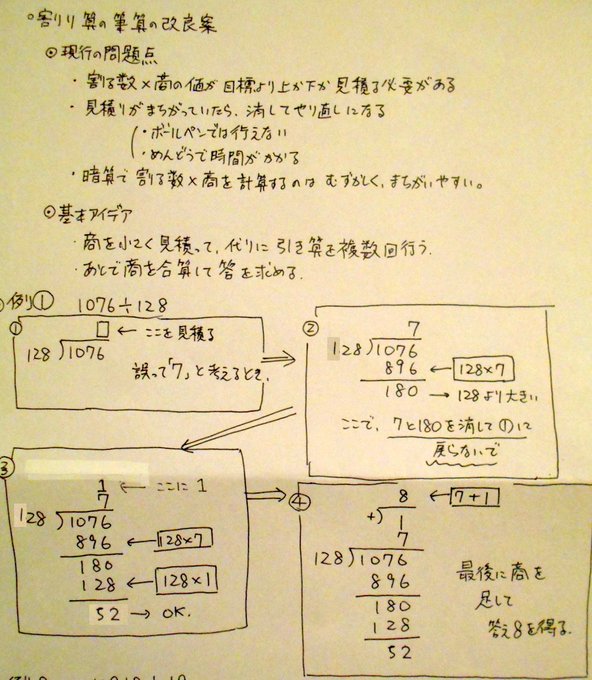 ○割り算の筆算の改良案
⊙現行の問題点
・割る数×商の値が目標より上か下か見積る必要がある
・見積りがまちがっていたら、消してやり直しになる
・ボールペンでは行えない
・めんどうで時間がかかる
・暗算で割る数×商を計算するのはむずかしく、まちがいやすい。
⊙基本アイデア
・商を小さく見積って、代りに引き算を複数回行う.
・あとで商を合算して答を求める.
例① 1076÷128
①
□ ← ここを見積る
128)1076
誤って「7」と考えるとき,
②
7
128)1076
896 ← 128×7
180 → 128より大きい
ここで、7と180を消して①に
戻らないで
③
1 ← ここに1
7
128)1076
896 ← 128×7
180
128 ← 128×1
52 → OK.
④
8 ← 7+1
+)1
7
128)1076
896
180
128
52
最後に商を
足して
答え8を得る.